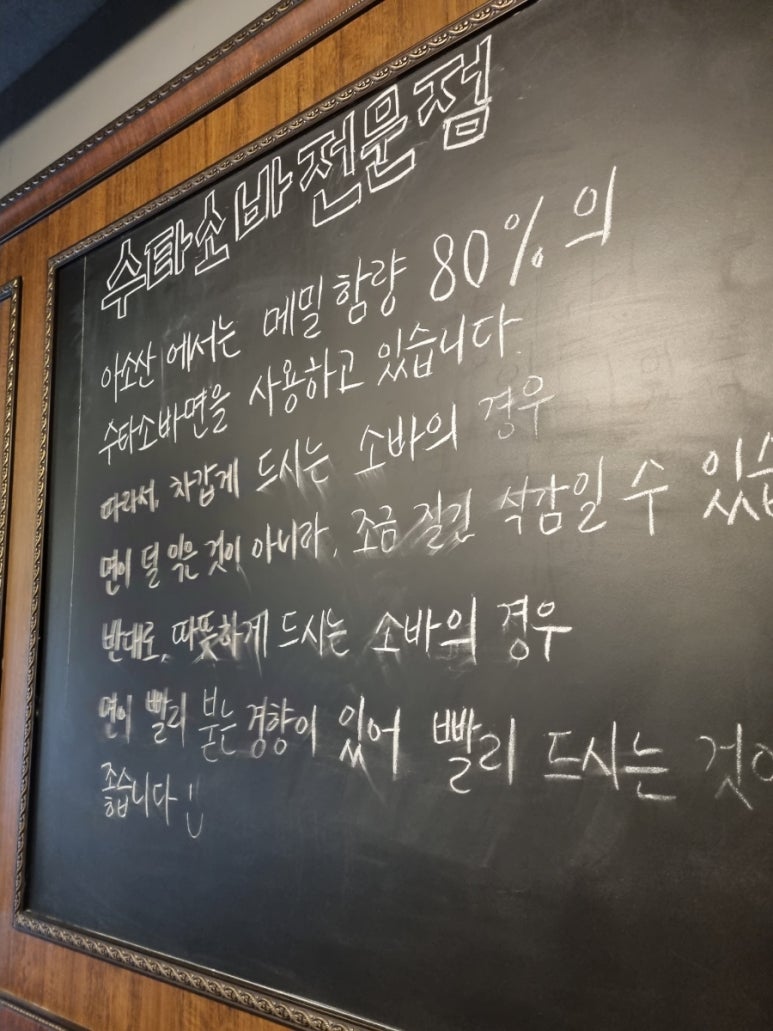 수타소바전문점
아소산에서는 메밀함량 80%의
수타소바면을 사용하고 있습니다.
따라서, 차갑게 드시는 소바의 경우
면이 덜 익은 것이 아니라, 조금 질긴 식감일 수 있습
반대로, 따뜻하게 드시는 소바의 경우
면이 빨리 붇는 경향이 있어 빨리 드시는 것이
좋습니다 :)